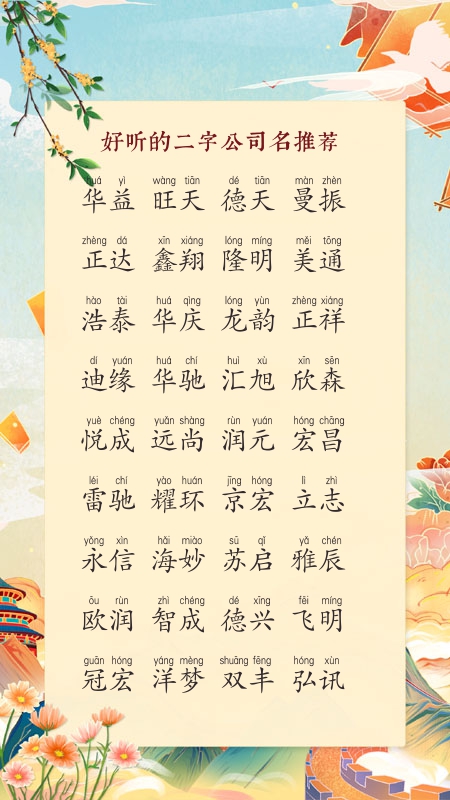 好听的二字公司名推荐
huá yì wàng tiān dé tiān màn zhèn
华益 旺天 德天 曼振
zhèng dá xīn xiáng lóng míng měi tōng
正达 鑫翔 隆明 美通
hào tài huá qìng lóng yùn zhèng xiáng
浩泰 华庆 龙韵 正祥
dí yuán huá chí huì xù xīn sēn
迪缘 华驰 汇旭 欣森
yuè chéng yuǎn shàng rùn yuán hóng chāng
悦成 远尚 润元 宏昌
léi chí yào huán jīng hóng lì zhì
雷驰 耀环 京宏 立志
yǒng xìn hǎi miào sū qǐ yǎ chén
永信 海妙 苏启 雅辰
ōu rùn zhì chéng dé xīng fēi míng
欧润 智成 德兴 飞明
guān hóng yáng mèng shuāng fēng hóng xùn
冠宏 洋梦 双丰 弘讯